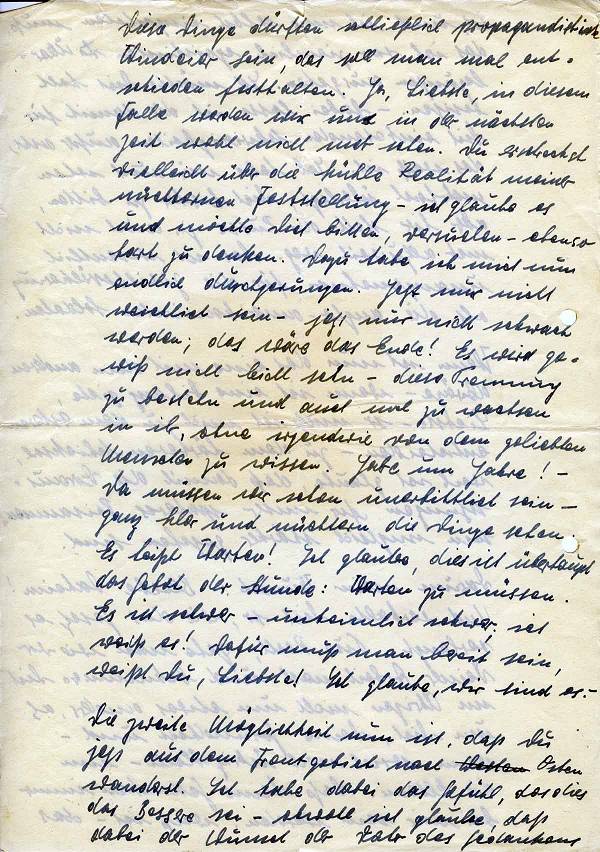 Diese Dinge dürften schließlich propagandistische
Windeier sein, das soll man mal ent-
schieden festhalten. Ja, Liebste, in diesem
Falle werden wir uns in der nächsten
Zeit wohl nicht mehr sehen. Du erschreckst
vielleicht über die kühle Realität meiner
nüchternen Feststellung – ich glaube es
und möchte Dich bitten, versuchen – ebenso
hart zu denken. Dazu habe ich mich nun
endlich durchgerungen. Jetzt nur nicht
weichlich sein – jetzt nur nicht schwach
werden; das wäre das Ende! Es wird ge-
wiß nicht leicht sein – diese Trennung
zu bestehn und auch noch zu wachsen
in ihr, ohne irgendwie von dem geliebten
Menschen zu wissen. Jahre um Jahre! –
Da müssen wir schon unerbittlich sein –
ganz klar und nüchtern die Dinge sehen.
Es heißt Warten! Ich glaube, dies ist überhaupt
das Gebot der Stunde: Warten zu müssen.
Es ist schwer – unheimlich schwer, ich
weiß es! Dafür muß man bereit sein,
weißt Du, Liebste! Ich glaube, wir sind es.–
Die zweite Möglichkeit nun ist, daß Du
jetzt aus dem Frontgebiet nach Westen Osten
wanderst. Ich habe dabei das Gefühl, das dies
das Bessere sei – obwohl ich glaube, daß
dabei der Wunsch der Vater des Gedankens